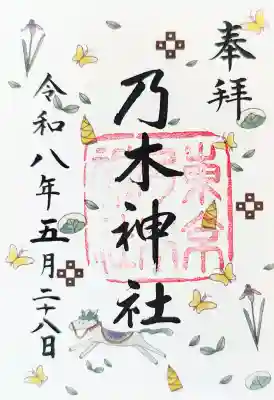 奉拝
乃木神社
令和八年五月二十八日